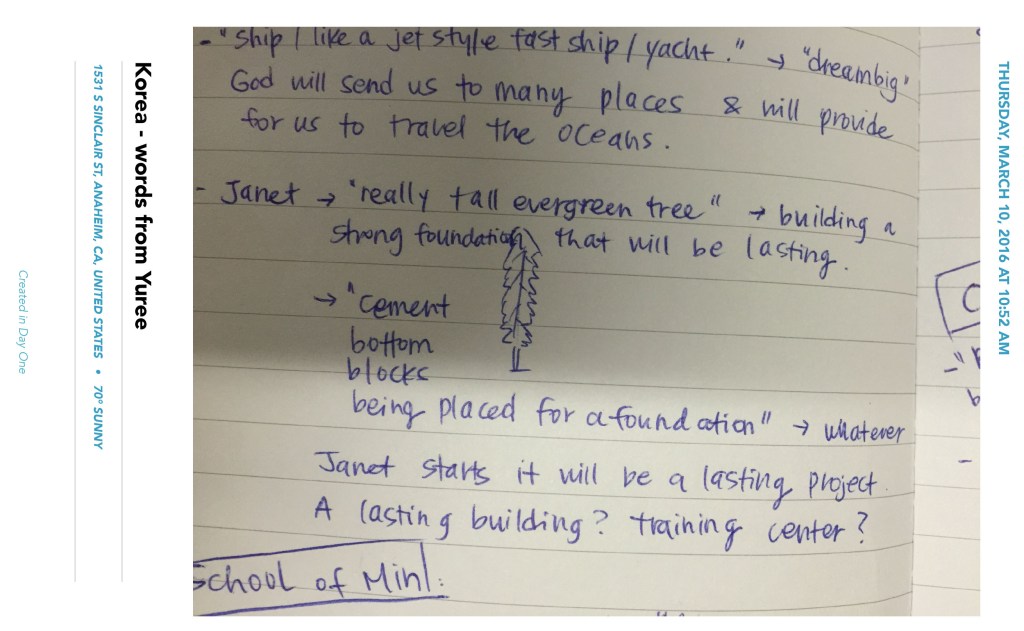 THURSDAY, MARCH 10, 2016 AT 10:52 AM
- "ship / like a jet style fast ship / yacht." → "dreambig"
God will send us to many places & will provide
for us to travel the oceans.
- Janet → "really tall evergreen tree" → building a
strong foundation that will be lasting.
→ "cement
bottom
blocks
being placed for a foundation" → whatever
Janet starts it will be a lasting project.
A lasting building? training center?
School of Min/.:
Korea - words from Yuree
1531 S SINCLAIR ST, ANAHEIM, CA, UNITED STATES • 70° SUNNY
Created in Day One